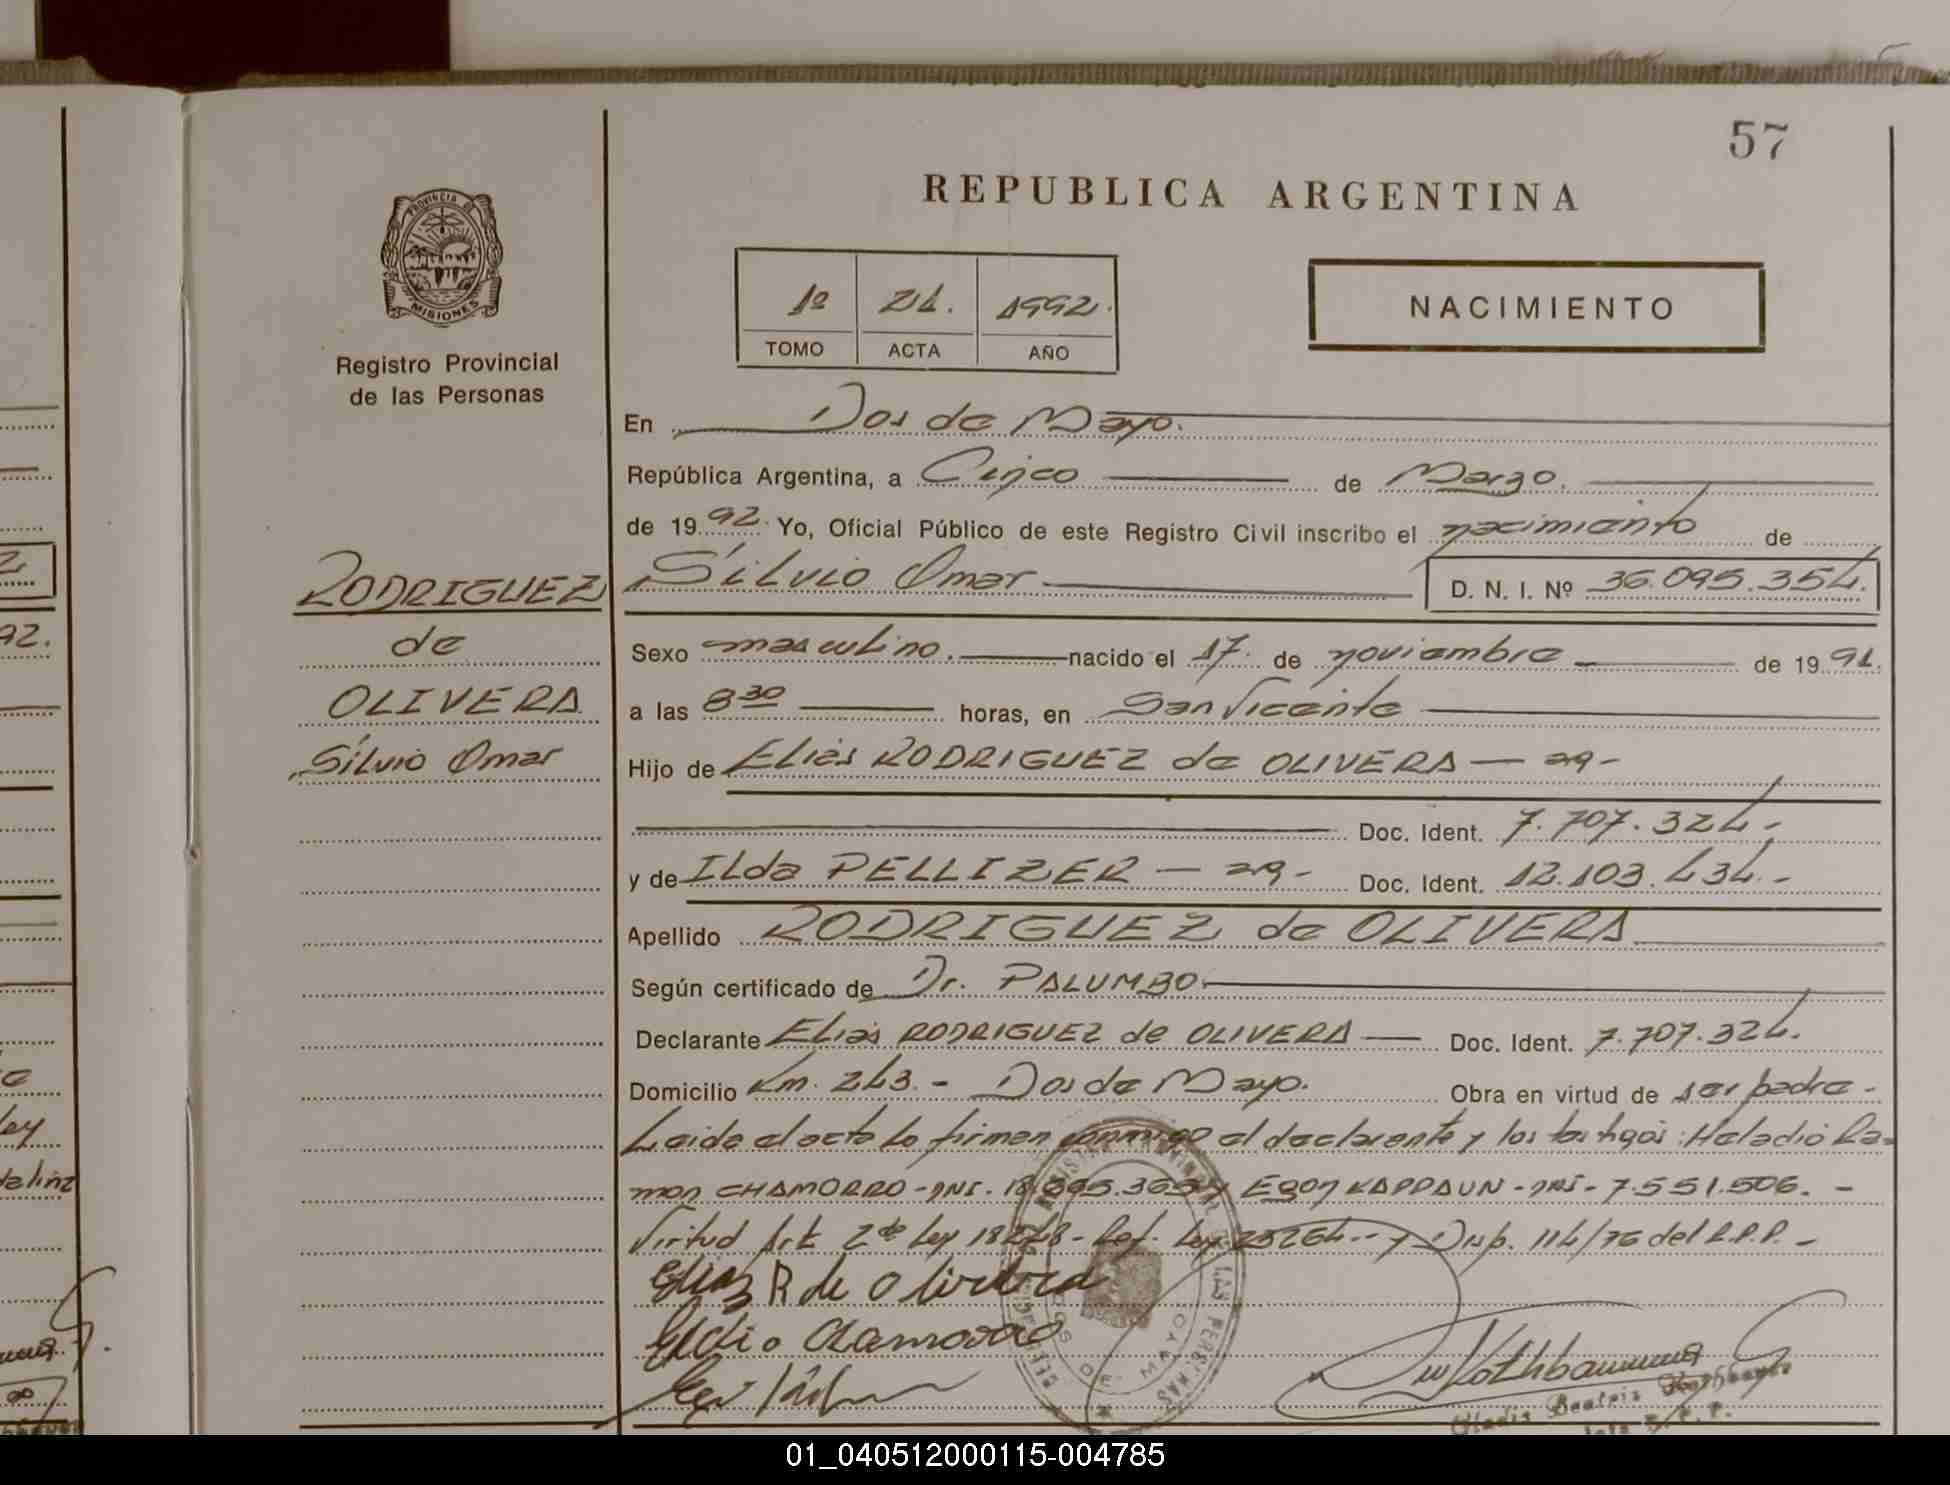 57
REPUBLICA ARGENTINA
PROVINCIA DE
MISIONES
Registro Provincial
de las Personas
1º 24. 1992.
TOMO ACTA AÑO
NACIMIENTO
En Dos de Mayo.
República Argentina, a Cinco de Marzo.
de 1992. Yo, Oficial Público de este Registro Civil inscribo el nacimiento de
Silvio Omar D. N. I. Nº 36.095.354.
RODRIGUEZ
de
OLIVERA
Silvio Omar
Sexo masculino. nacido el 17. de noviembre de 1991.
a las 8 30 horas, en San Vicente
Hijo de Eliás RODRIGUEZ de OLIVERA — ag -
Doc. Ident. 7.707.324.-
y de Ilda PELLIZER — ag - Doc. Ident. 12.103.434.-
Apellido RODRIGUEZ de OLIVERA
Según certificado de Dr. PALUMBO.
Declarante Eliás RODRIGUEZ de OLIVERA — Doc. Ident. 7.707.324.
Domicilio Km. 243.- Dos de Mayo. Obra en virtud de ser padre.-
Leida el acta la firman conmigo el declarante y los testigos: Heladio Ra-
mon CHAMORRO - DNI. Egon KAPPAUN - DNI - 7.551.506. -
Virtud Art. 2º de Ley 18248 - Ref. Ley 23264 - y Disp. 114/76 del R.P.P. -
Elias R de Olivera
Eladio Chamorro
Rothbaum
Gladis Beatriz
01_040512000115-004785